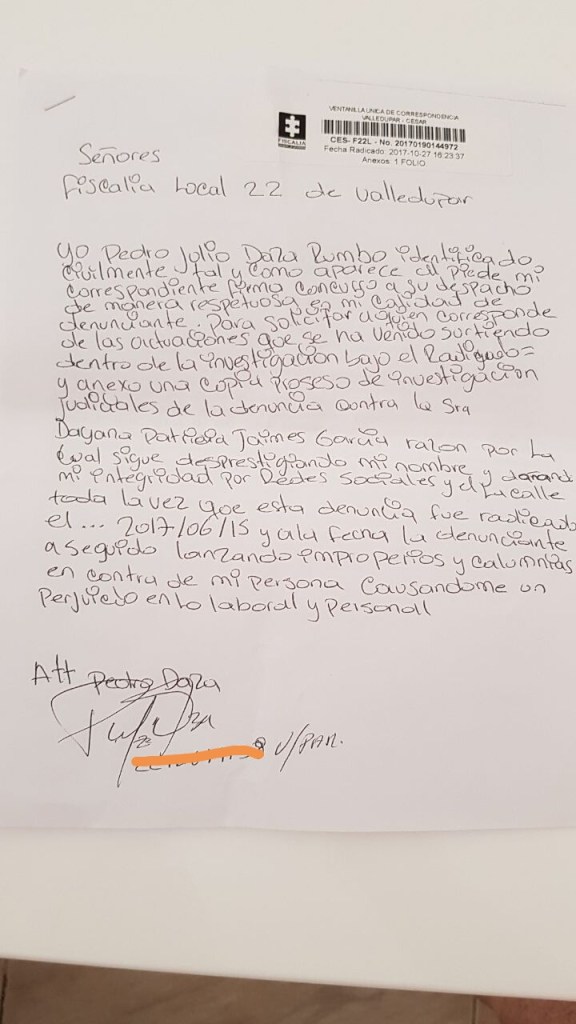 VENTANILLA UNICA DE CORRESPONDENCIA
VALLEDUPAR - CESAR
FISCALIA
CES- F22L - No. 20170190144972
Fecha Radicado: 2017-10-27 16:23:37
Anexos: 1 FOLIO
Señores
Fiscalia Local 22 de Valledupar
Yo Pedro Julio Daza Rumbo identificado
civilmente tal y como aparece al piede mi
correspondiente firma concurro a su despacho
de manera respetuosa en mi calidad de
denunciante. Para solicitar aquien corresponde
de las actuaciones que se ha venido surtiendo
dentro de la investigacion bajo el Radigado=
y anexo una copia proseso de investigacion
judiciales de la denuncia contra la Sra
Dayana Patricia Jaimes Garcia razon por la
cual sigue desprestigiando mi nombre y dañand
mi integridad por Redes sociales y en la calle
toda la vez que esta denuncia fue radicada
el ... 2017/06/15 y ala fecha la denunciante
a seguido lanzando improperios y calumnias
en contra de mi persona Causandome un
perjuicio en lo laboral y personal
Att Pedro Daza
V/par.